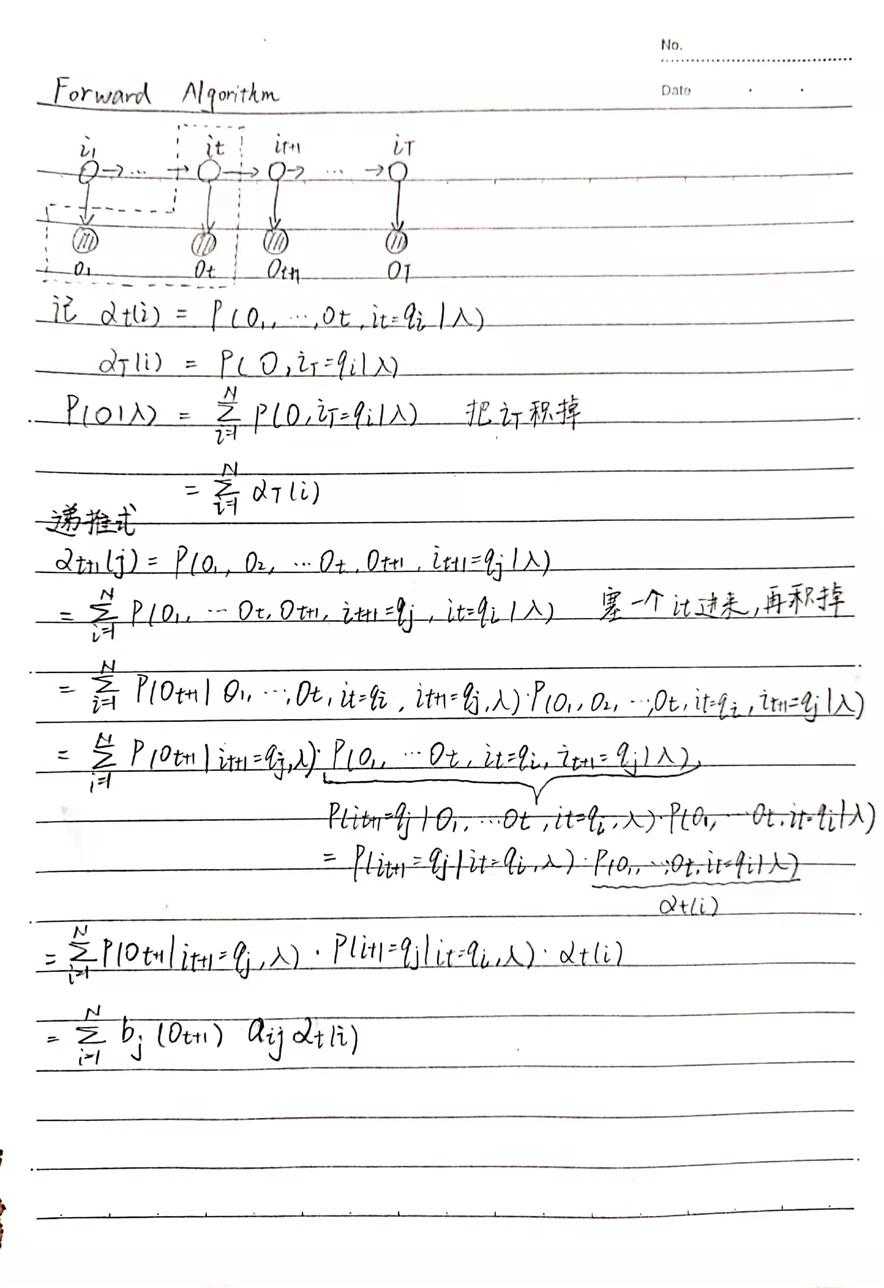 No.
Date
Forward Algorithm
i₁ ... iₜ iₜ₊₁ ... i_T
o₁ oₜ oₜ₊₁ o_T
记 αₜ(i) = P(o₁, ⋯, oₜ, iₜ=qᵢ|λ)
α_T(i) = P(O, i_T=qᵢ|λ)
P(O|λ) = ∑ᵢ₌₁ᴺ P(O, i_T=qᵢ|λ) 把 i_T 积掉
= ∑ᵢ₌₁ᴺ α_T(i)
递推式
αₜ₊₁(j) = P(o₁, o₂, ⋯ oₜ, oₜ₊₁, iₜ₊₁=qⱼ|λ)
= ∑ᵢ₌₁ᴺ P(o₁, ⋯ oₜ, oₜ₊₁, iₜ₊₁=qⱼ, iₜ=qᵢ|λ) 塞一个 iₜ 进来,再积掉
= ∑ᵢ₌₁ᴺ P(oₜ₊₁| o₁, ⋯, oₜ, iₜ=qᵢ, iₜ₊₁=qⱼ, λ)·P(o₁, o₂, ⋯, oₜ, iₜ=qᵢ, iₜ₊₁=qⱼ|λ)
= ∑ᵢ₌₁ᴺ P(oₜ₊₁|iₜ₊₁=qⱼ,λ)·P(o₁, ⋯ oₜ, iₜ=qᵢ, iₜ₊₁=qⱼ|λ)
P(iₜ₊₁=qⱼ|o₁, ⋯ oₜ, iₜ=qᵢ, λ)·P(o₁, ⋯ oₜ, iₜ=qᵢ|λ)
= P(iₜ₊₁=qⱼ|iₜ=qᵢ, λ)·P(o₁, ⋯, oₜ, iₜ=qᵢ|λ)
αₜ(i)
= ∑ᵢ₌₁ᴺ P(oₜ₊₁|iₜ₊₁=qⱼ, λ)·P(iₜ₊₁=qⱼ|iₜ=qᵢ, λ)·αₜ(i)
= ∑ᵢ₌₁ᴺ bⱼ(oₜ₊₁) aᵢⱼ αₜ(i)